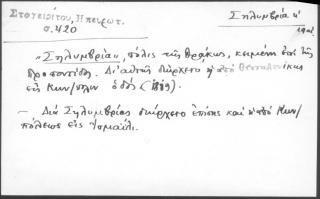 Στογειρίτου, Ηπειρωτ.
σ. 420
Σηλυμβρία ἡ
"Σηλυμβρία", πόλις τῆς Θράκης, κειμένη ἐπί τῆς
Προποντίδος. Δι' αὐτῆς διήρχετο ἡ ἀπό Θεσσαλονίκης
εἰς Κων/πολιν ὁδός (1819).
— Διά Σηλυμβρίας διήρχετο ἐπίσης καί ἡ ἀπό Κων/
πόλεως εἰς Ἰσμαήλι.